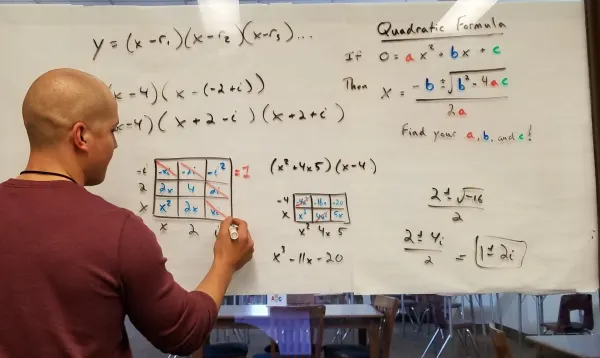 y = (x-r₁)(x-r₂)(x-r₃)...
x-4)(x-(-2+i))
x-4)(x+2-i)(x+2+i)
-i -xi -2i -i² = 1
2 2x 4 2i
x x² 2x xi
x 2
(x²+4x5)(x-4)
-4 -4x² -16x -20
x x³ 4x² 5x
x² 4x 5
x³-11x-20
Quadratic Formula
If 0=ax²+bx+c
Then x = -b ± √b²-4ac
2a
Find your a, b, and c!
2 ± √-16
2
2 ± 4i
2
= 1 ± 2i